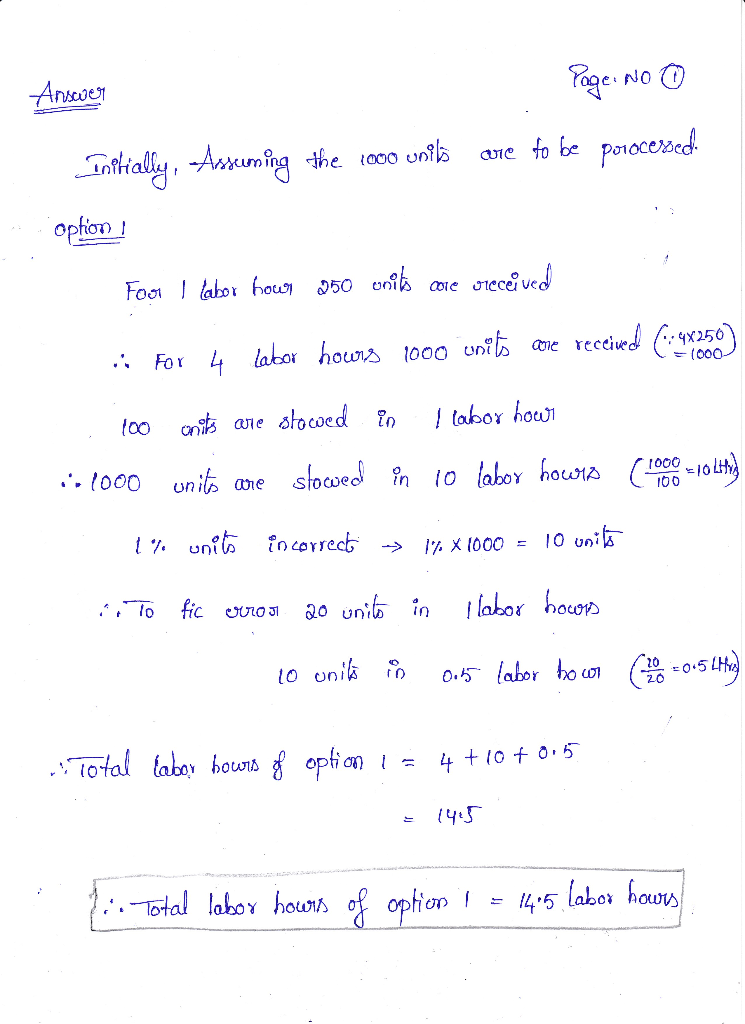 Page: NO ①
Answer
Initially, Assuming the 1000 units are to be processed.
option 1
For 1 labor hour 250 units are received
∴ For 4 labor hours 1000 units are received (∵ 4x250 = 1000)
100 units are stowed in 1 labor hour
∴ 1000 units are stowed in 10 labor hours (1000/100 = 10 LHrs)
1% units incorrect → 1% X 1000 = 10 units
∴ To fic error 20 units in 1 labor hours
10 units in 0.5 labor hour (10/20 = 0.5 LHrs)
∴ Total labor hours of option 1 = 4 + 10 + 0.5
= 14.5
∴ Total labor hours of option 1 = 14.5 labor hours